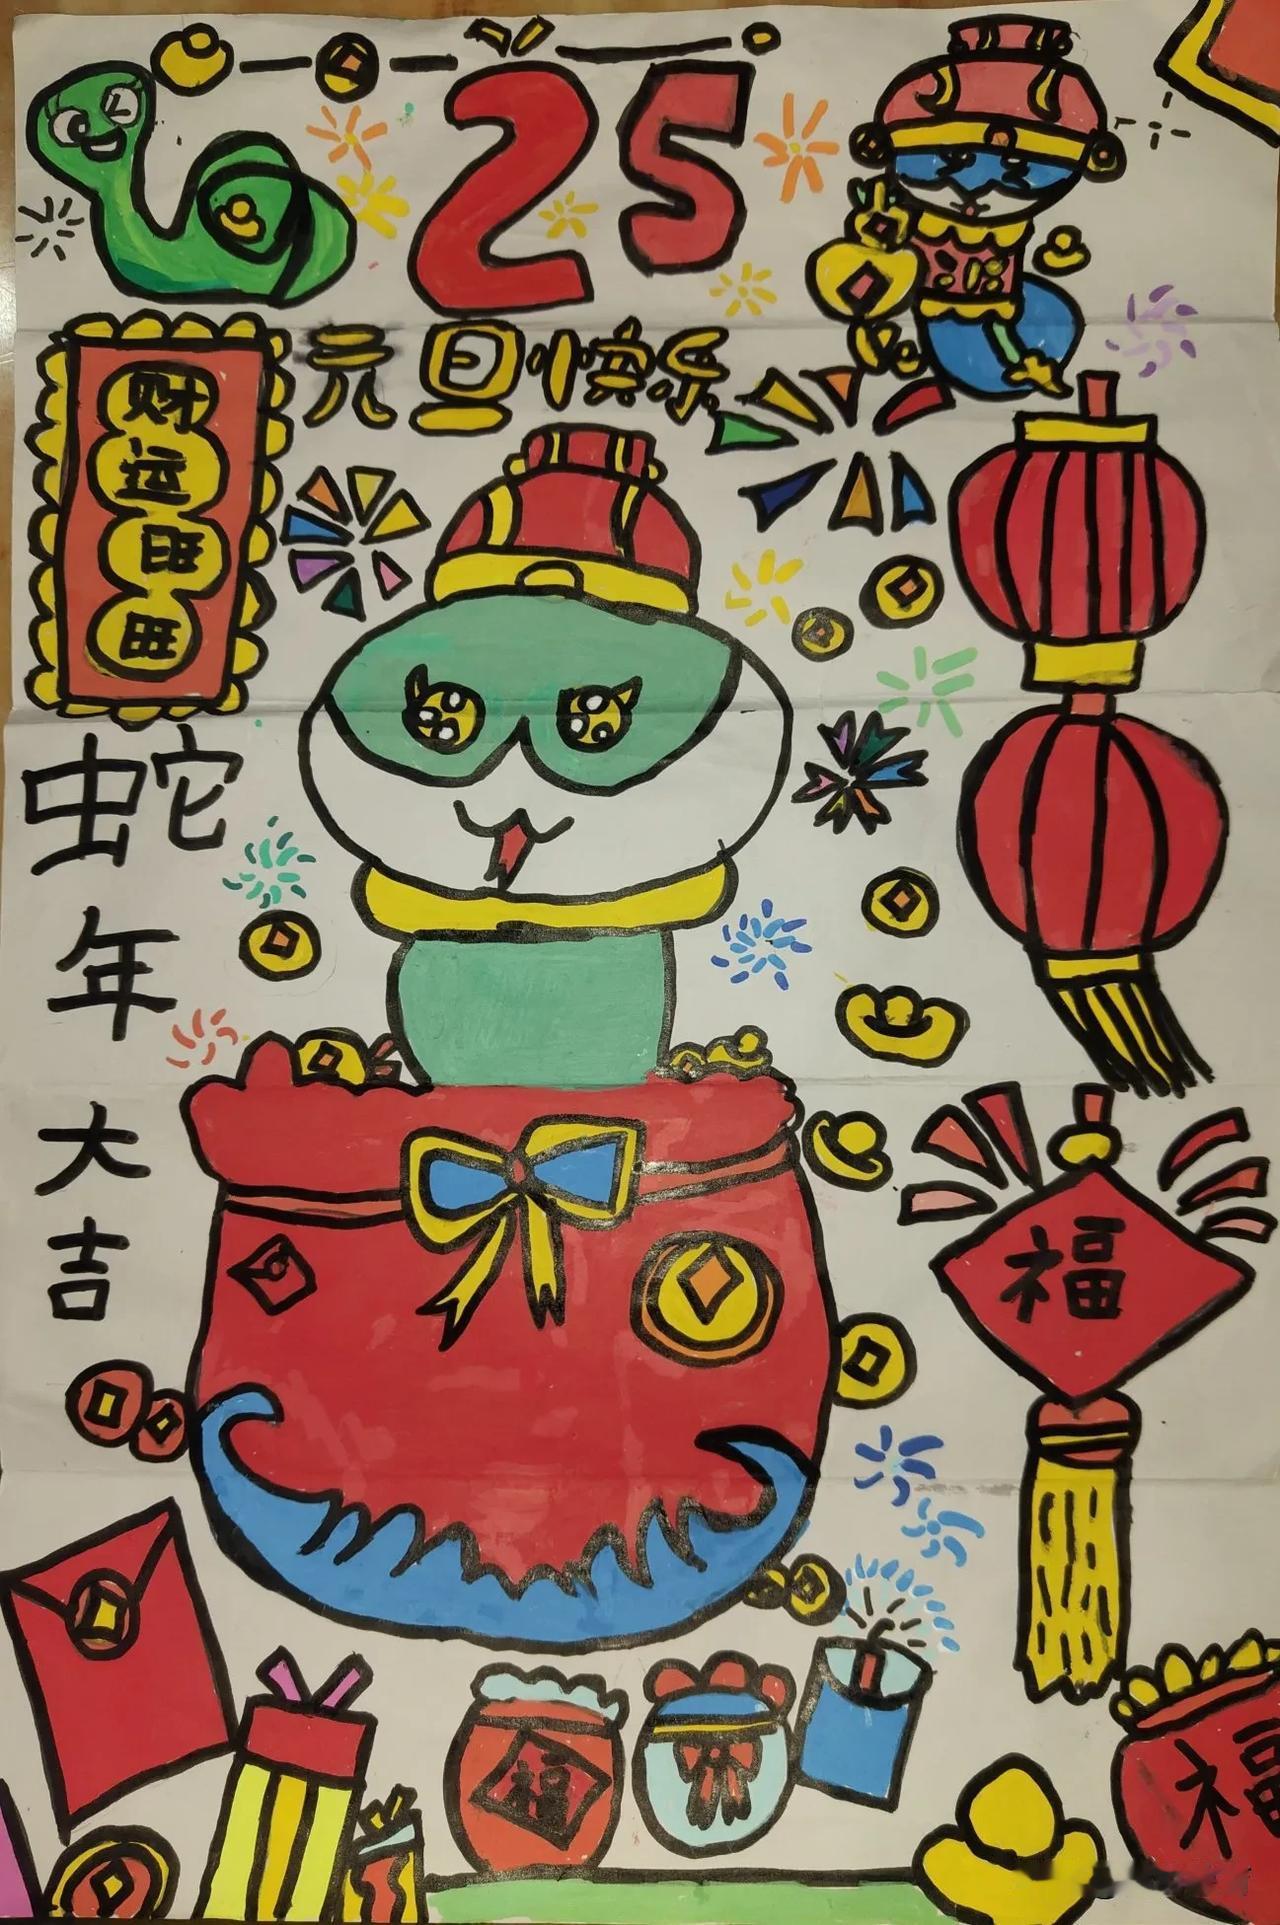 25
元旦快乐
财运旺旺
蛇年大吉
福
福
福